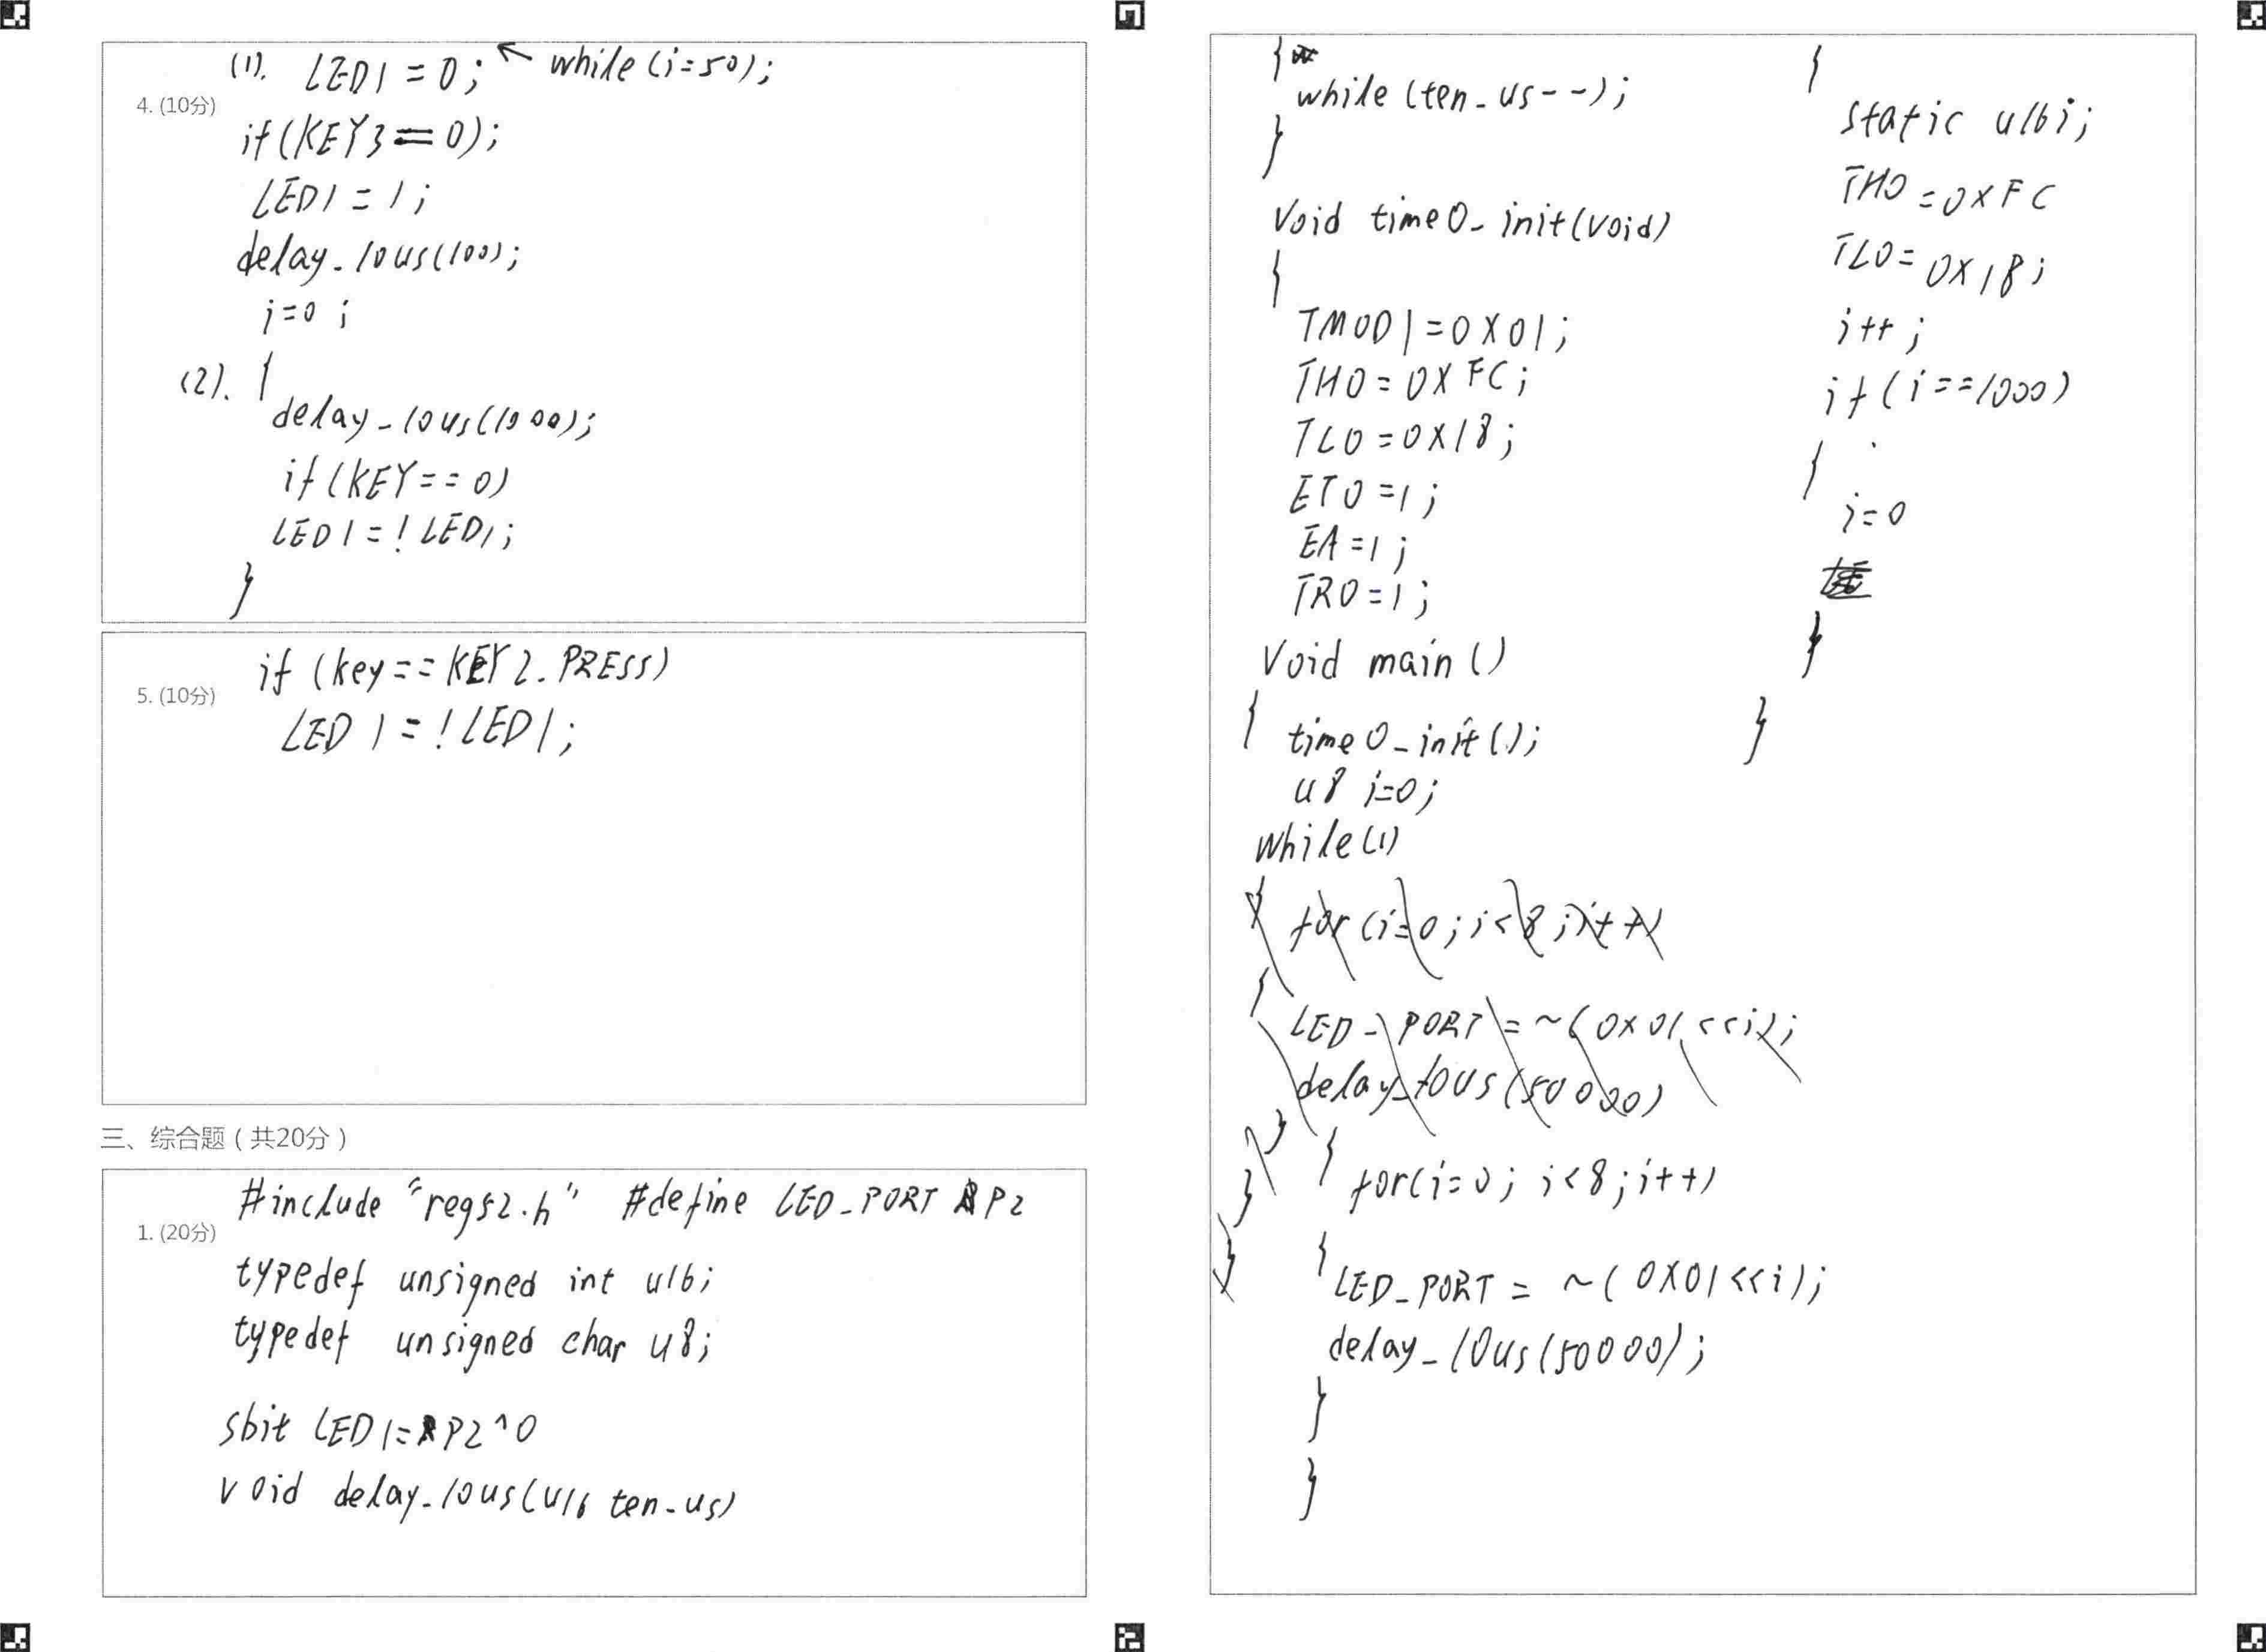 (1). LED1=0; ← while(i=50);
4. (10分)
if(KEY3==0);
LED1=1;
delay-10us(100);
i=0;
(2). {
delay-10us(1000);
if(KEY==0)
LED1=!LED1;
}
if (key==KEY2.PRESS)
5. (10分)
LED1=!LED1;
三、综合题（共20分）
#include "reg52.h" #define LED-PORT P2
1. (20分)
typedef unsigned int u16;
typedef unsigned char u8;
sbit LED1=P2^0
void delay-10us(u16 ten-us)
{
while(ten-us--);
}
void time0-init(void)
{
TMOD|=0X01;
TH0=0XFC;
TL0=0X18;
ET0=1;
EA=1;
TR0=1;
void main()
{ time0-init();
u8 i=0;
while(1)
{ for(i=0;i<8;i++)
{
LED-PORT=~(0x01<<i);
delay-10us(50000)
}
}
}
{ for(i=0; i<8;i++)
{ LED-PORT = ~(0X01<<i);
delay-10us(50000);
}
}
{
static u16 i;
TH0=0XFC
TL0=0X18;
i++;
if(i==1000)
{
i=0
}
}